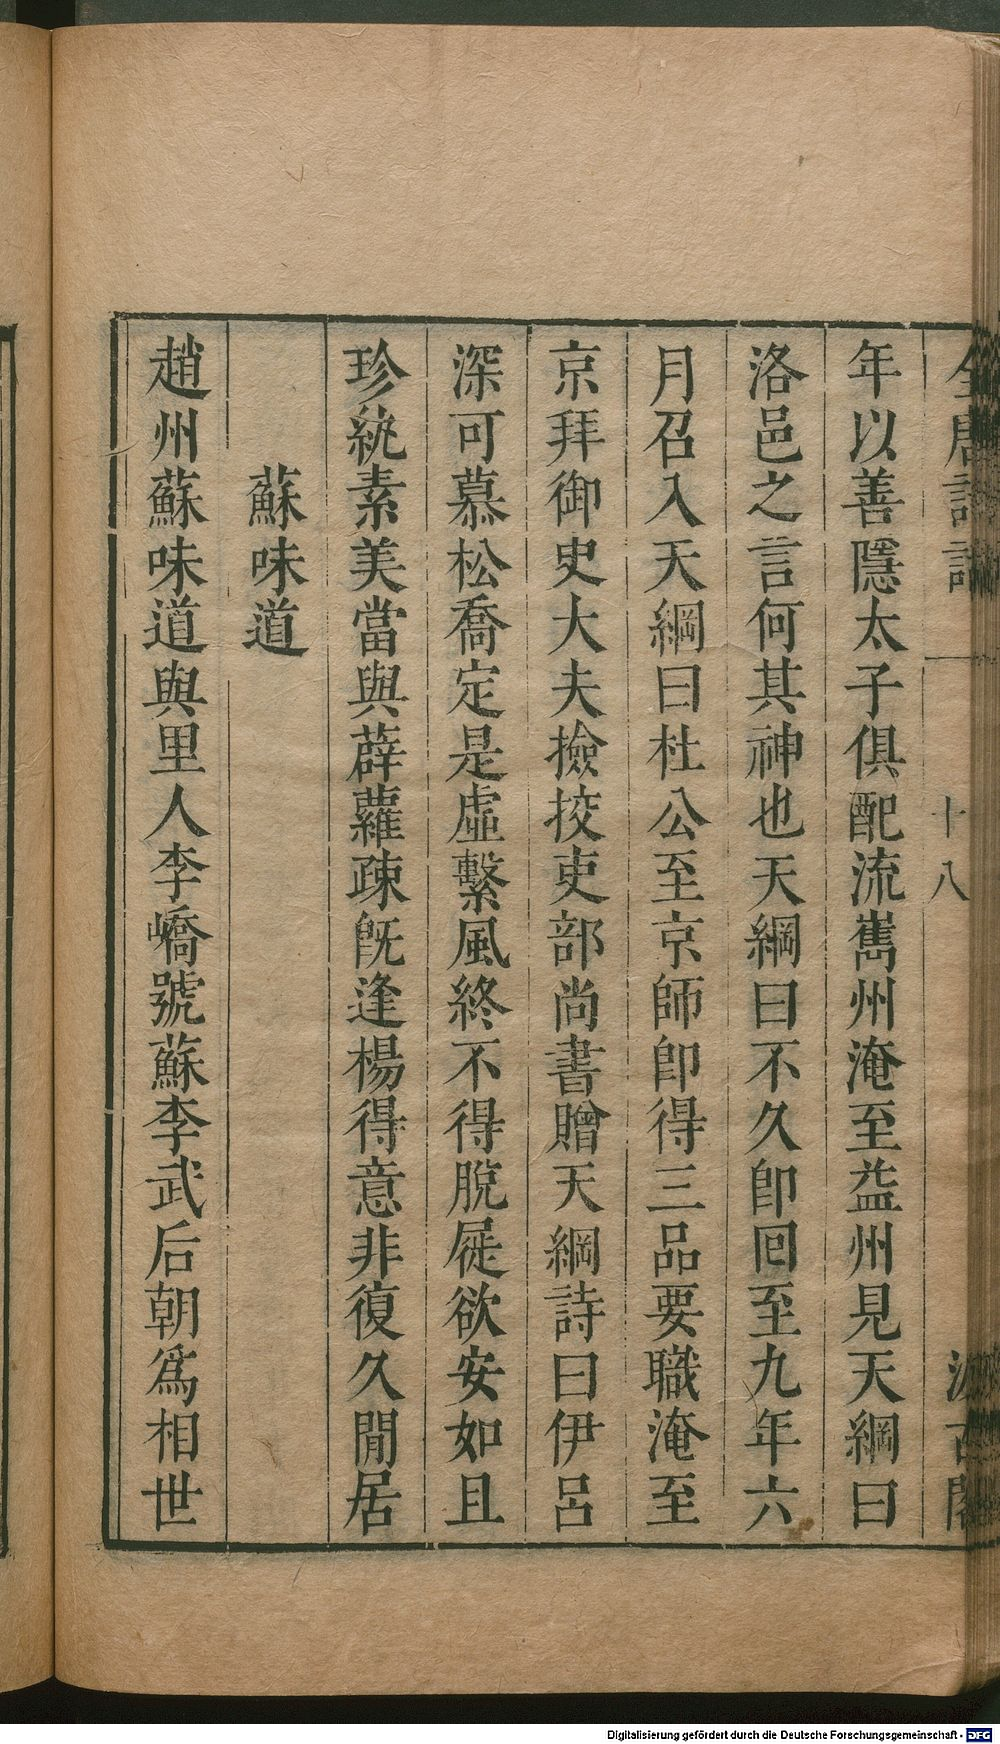 全唐詩話
十八
汲古閣
年以善隱太子俱配流雟州淹至益州見天綱曰
洛邑之言何其神也天綱曰不久即回至九年六
月召入天綱曰杜公至京師即得三品要職淹至
京拜御史大夫撿挍吏部尚書贈天綱詩曰伊呂
深可慕松喬定是虛繫風終不得脫屣欲安如且
珍紈素美當與薜蘿疎旣逢楊得意非復久閒居
蘇味道
趙州蘇味道與里人李嶠號蘇李武后朝爲相世
Digitalisierung gefördert durch die Deutsche Forschungsgemeinschaft - DFG